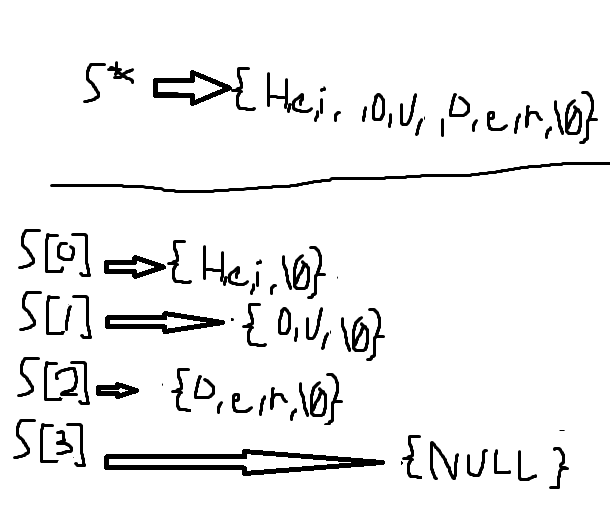 S* {H,e,i, ,O,U, ,D,e,r,\0}
S[0] {H,e,i,\0}
S[1] {O,U,\0}
S[2] {D,e,r,\0}
S[3] {NULL}